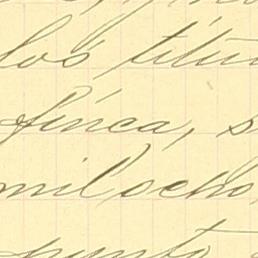 los titu
finca, s
mil ocho
punto